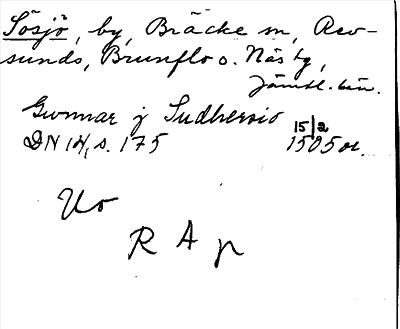 Sösjö, by, Bräcke sn, Rev-
sunds, Brunflo o. Näs tg,
Jämtl. län.
Gunnar j Sudhersio 15/2
DN 14, s. 175 1505 or.
Uo
R A p